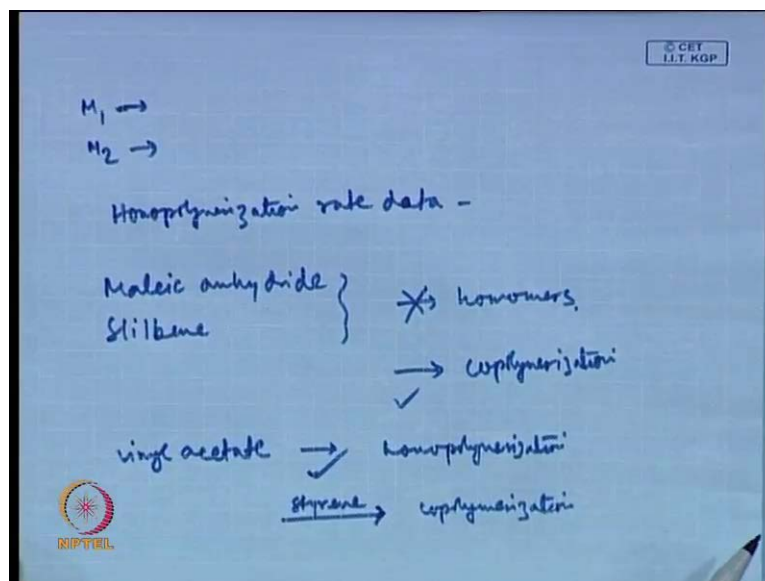 © CET
I.I.T. KGP
M₁ →
M₂ →
Homopolymerization rate data -
Maleic anhydride }
Stilbene
homomers.
→ copolymerization
✓
vinyl acetate → homopolymerization
✓
styrene → copolymerization
NPTEL